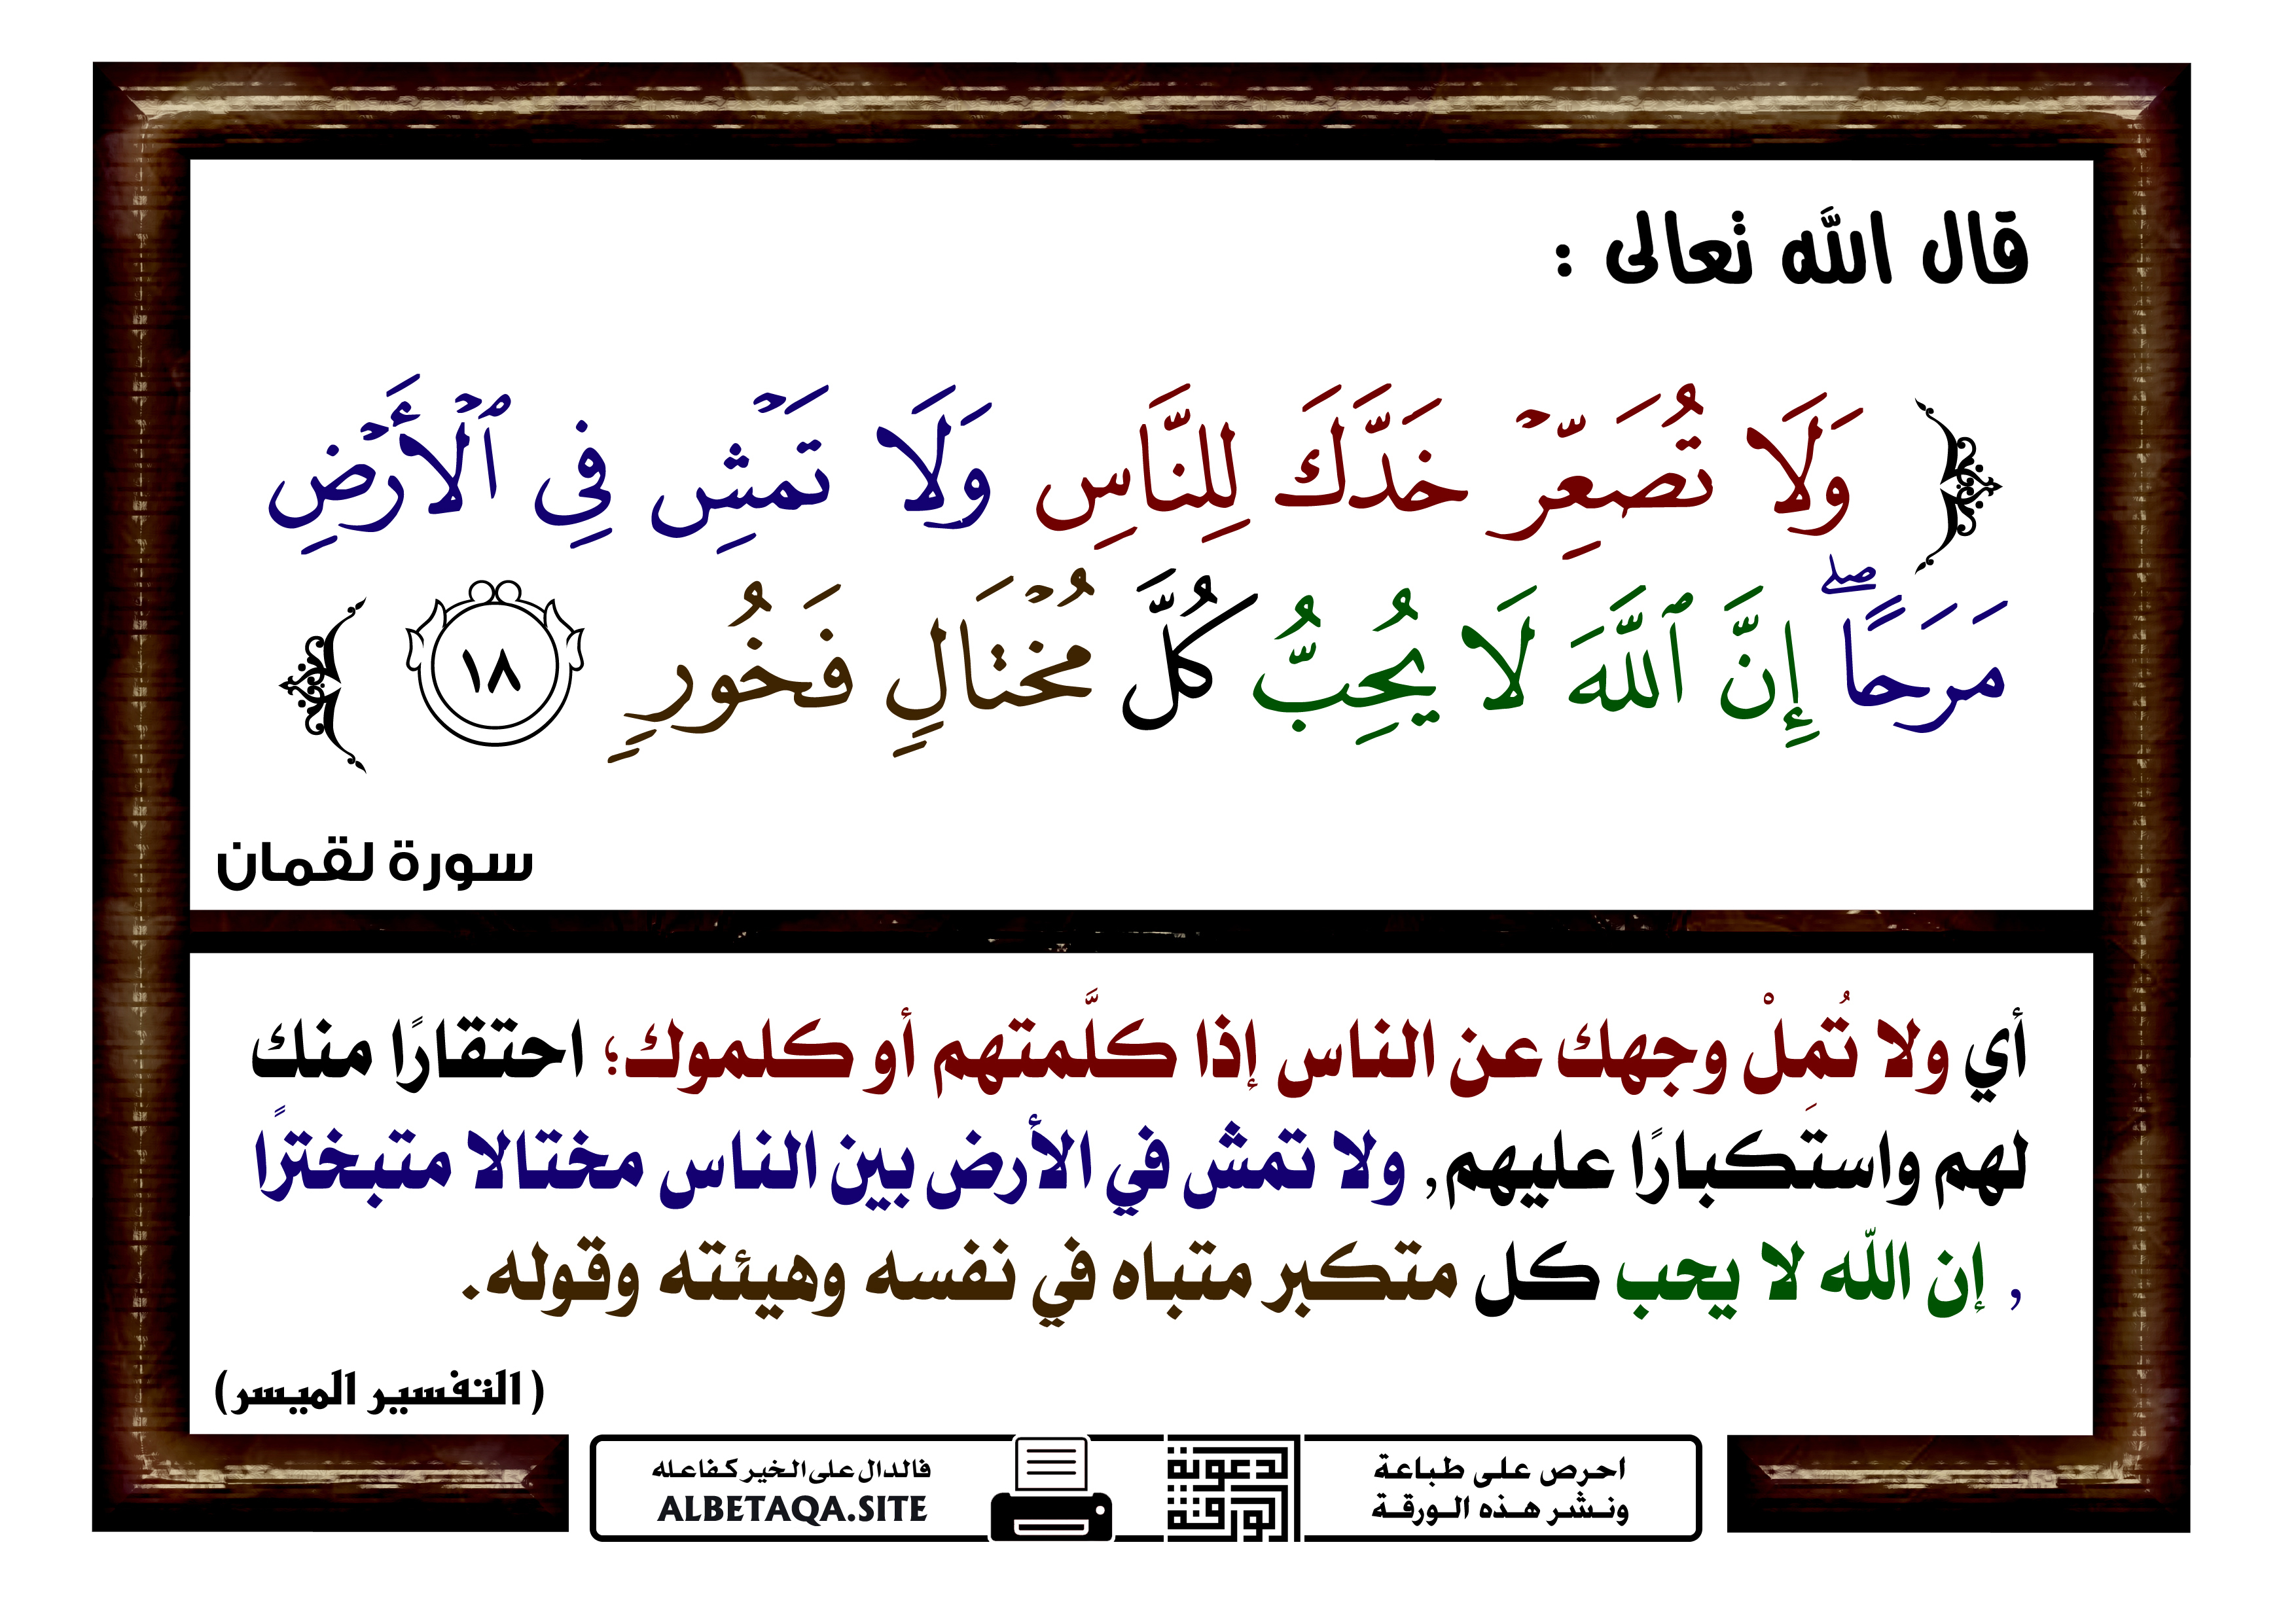 قال الله تعالى :
﴿ وَلَا تُصَعِّرۡ خَدَّكَ لِلنَّاسِ وَلَا تَمۡشِ فِى ٱلۡأَرۡضِ
مَرَحًاۖ إِنَّ ٱللَّهَ لَا يُحِبُّ كُلَّ مُخۡتَالٍ فَخُورٍ ١٨ ﴾
سورة لقمان
أي ولا تُمِلْ وجهك عن الناس إذا كلَّمتهم أو كلموك؛ احتقارًا منك
لهم واستكبارًا عليهم, ولا تمش في الأرض بين الناس مختالا متبخترًا
, إن الله لا يحب كل متكبر متباه في نفسه وهيئته وقوله.
( التفسير الميسر)
احرص على طباعة
ونشر هذه الورقة
الورقة
الدعوية
فالدال على الخير كفاعله
ALBETAQA.SITE